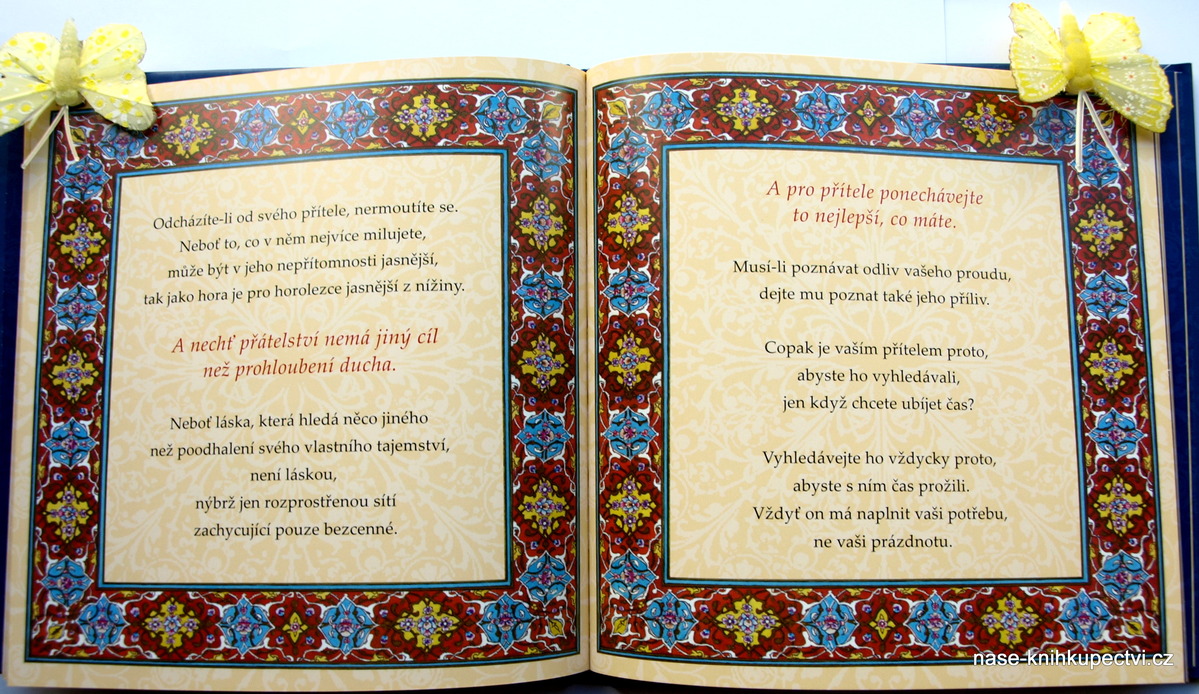 Odcházíte-li od svého přítele, nermoutíte se.
Neboť to, co v něm nejvíce milujete,
může být v jeho nepřítomnosti jasnější,
tak jako hora je pro horolezce jasnější z nížiny.
A nechť přátelství nemá jiný cíl
než prohloubení ducha.
Neboť láska, která hledá něco jiného
než poodhalení svého vlastního tajemství,
není láskou,
nýbrž jen rozprostřenou sítí
zachycující pouze bezcenné.
A pro přítele ponechávejte
to nejlepší, co máte.
Musí-li poznávat odliv vašeho proudu,
dejte mu poznat také jeho příliv.
Copak je vaším přítelem proto,
abyste ho vyhledávali,
jen když chcete ubíjet čas?
Vyhledávejte ho vždycky proto,
abyste s ním čas prožili.
Vždyť on má naplnit vaši potřebu,
ne vaši prázdnotu.
nase-knihkupectvi.cz